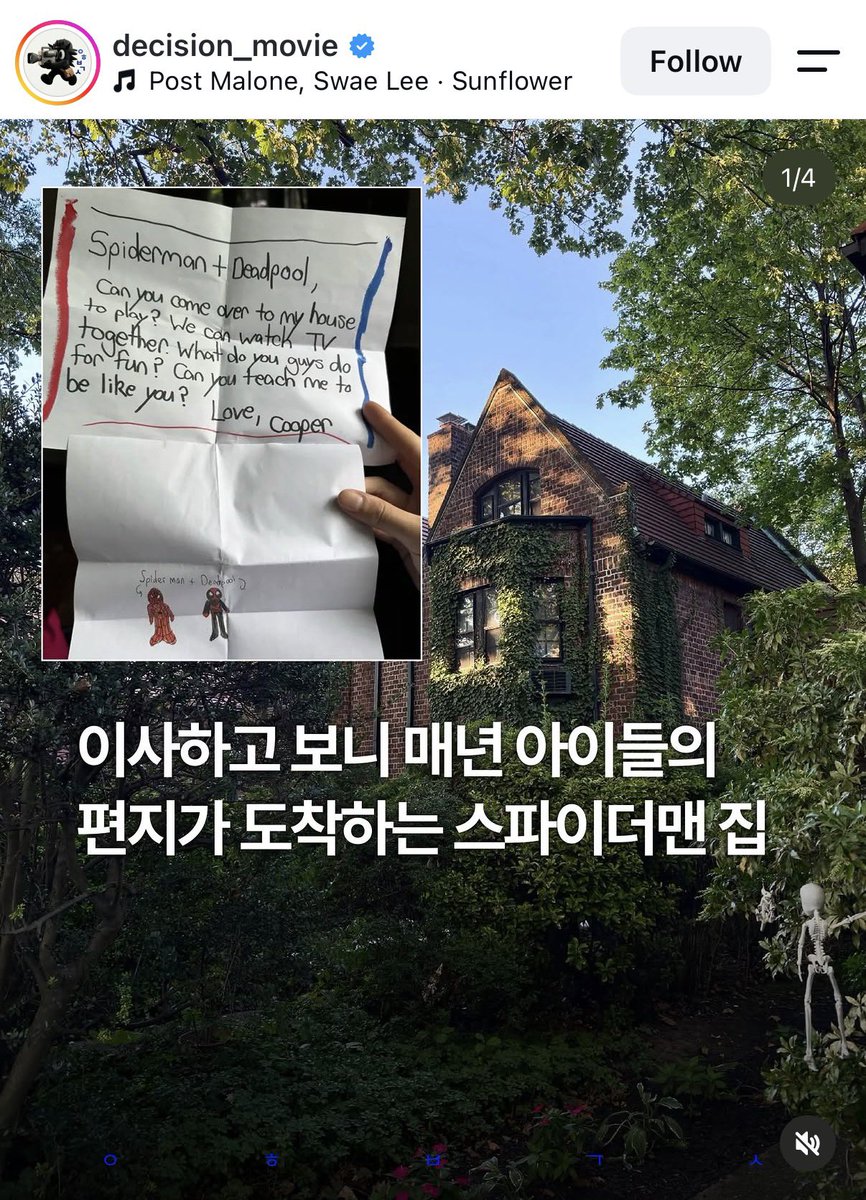 decision_movie
Post Malone, Swae Lee · Sunflower
Follow
1/4
Spiderman + Deadpool,
Can you come over to my house
to play? We can watch TV
together. What do you guys do
for fun? Can you teach me to
be like you?
Love, Cooper
Spider man + Deadpool
이사하고 보니 매년 아이들의
편지가 도착하는 스파이더맨 집
ㅇ ㅎ ㅂ ㄱ ㅅ